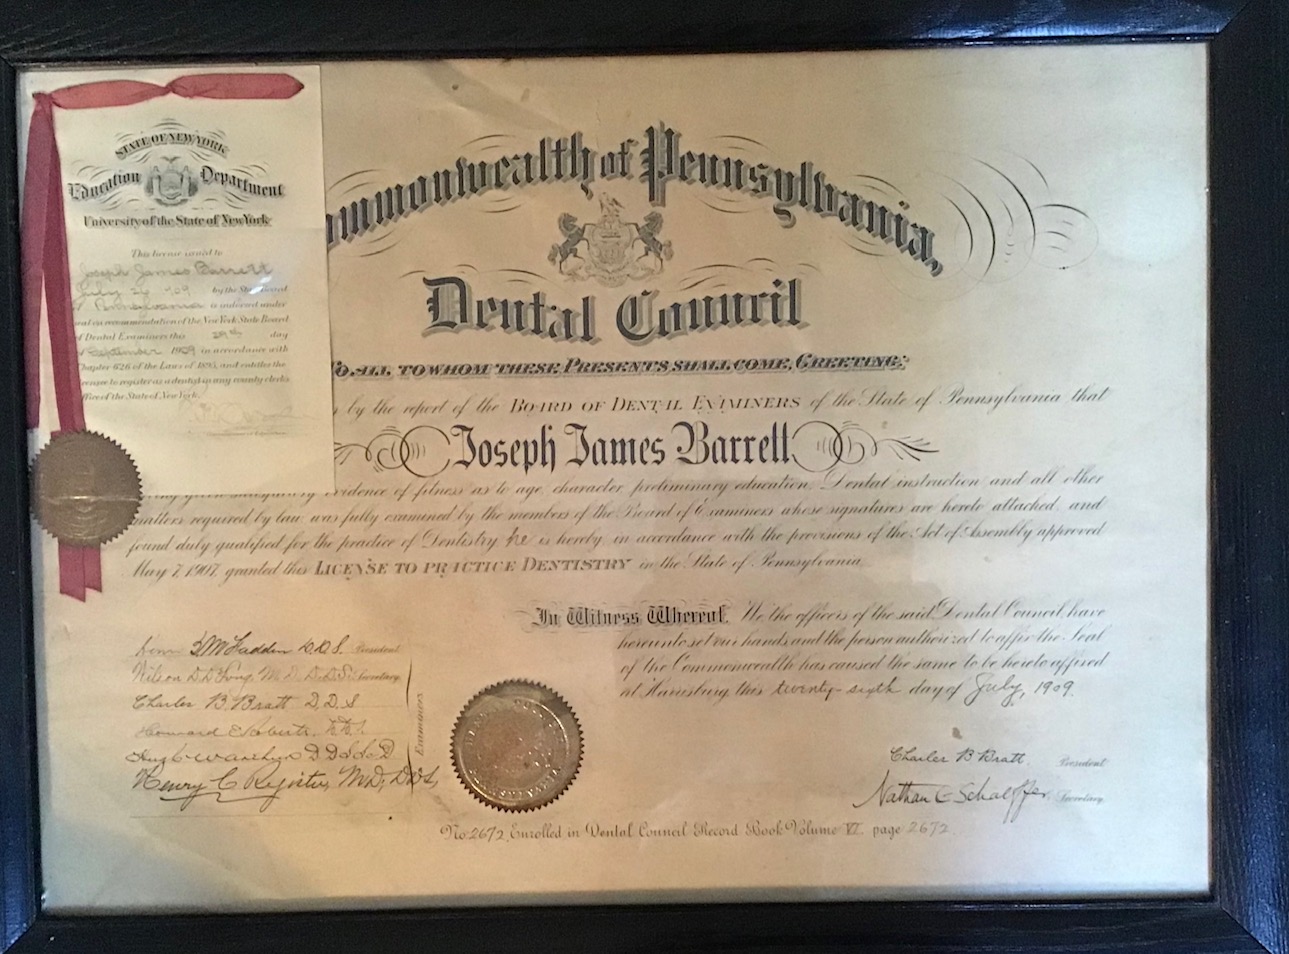 STATE OF NEW YORK
Education Department
University of the State of New York
This license issued to
Joseph James Barrett
July 26 1909 by the State Board
of Pennsylvania is indorsed under
and on recommendation of the New York State Board
of Dental Examiners this 29th day
of September 1909 in accordance with
Chapter 626 of the Laws of 1895, and entitles the
licensee to register as a dentist in any county clerk's
office of the State of New York.
ommonwealth of Pennsylvania,
Dental Council
To ALL TO WHOM THESE PRESENTS SHALL COME, GREETING:
by the report of the BOARD OF DENTAL EXAMINERS of the State of Pennsylvania that
Joseph James Barrett
evidence of fitness as to age, character, preliminary education, Dental instruction and all other
matters required by law was fully examined by the members of the Board of Examiners whose signatures are hereto attached, and
found duly qualified for the practice of Dentistry, he is hereby, in accordance with the provisions of the Act of Assembly approved
May 7, 1907, granted this LICENSE TO PRACTICE DENTISTRY in the State of Pennsylvania.
In Witness Whereof, We the officers of the said Dental Council, have
hereunto set our hands and the person authorized to affix the Seal
of the Commonwealth has caused the same to be hereto affixed
at Harrisburg, this twenty-sixth day of July, 1909.
D.D.S. President
M.D. D.D.S. Secretary
Charles B. Bratt D.D.S
Howard E. Roberts
Henry C. Register, M.D., D.D.S.
Examiners
DENTAL COUNCIL
PENNSYLVANIA
Charles B Bratt President
Nathan C Schaeffer Secretary
No. 2672, Enrolled in Dental Council Record Book Volume VI page 2672.